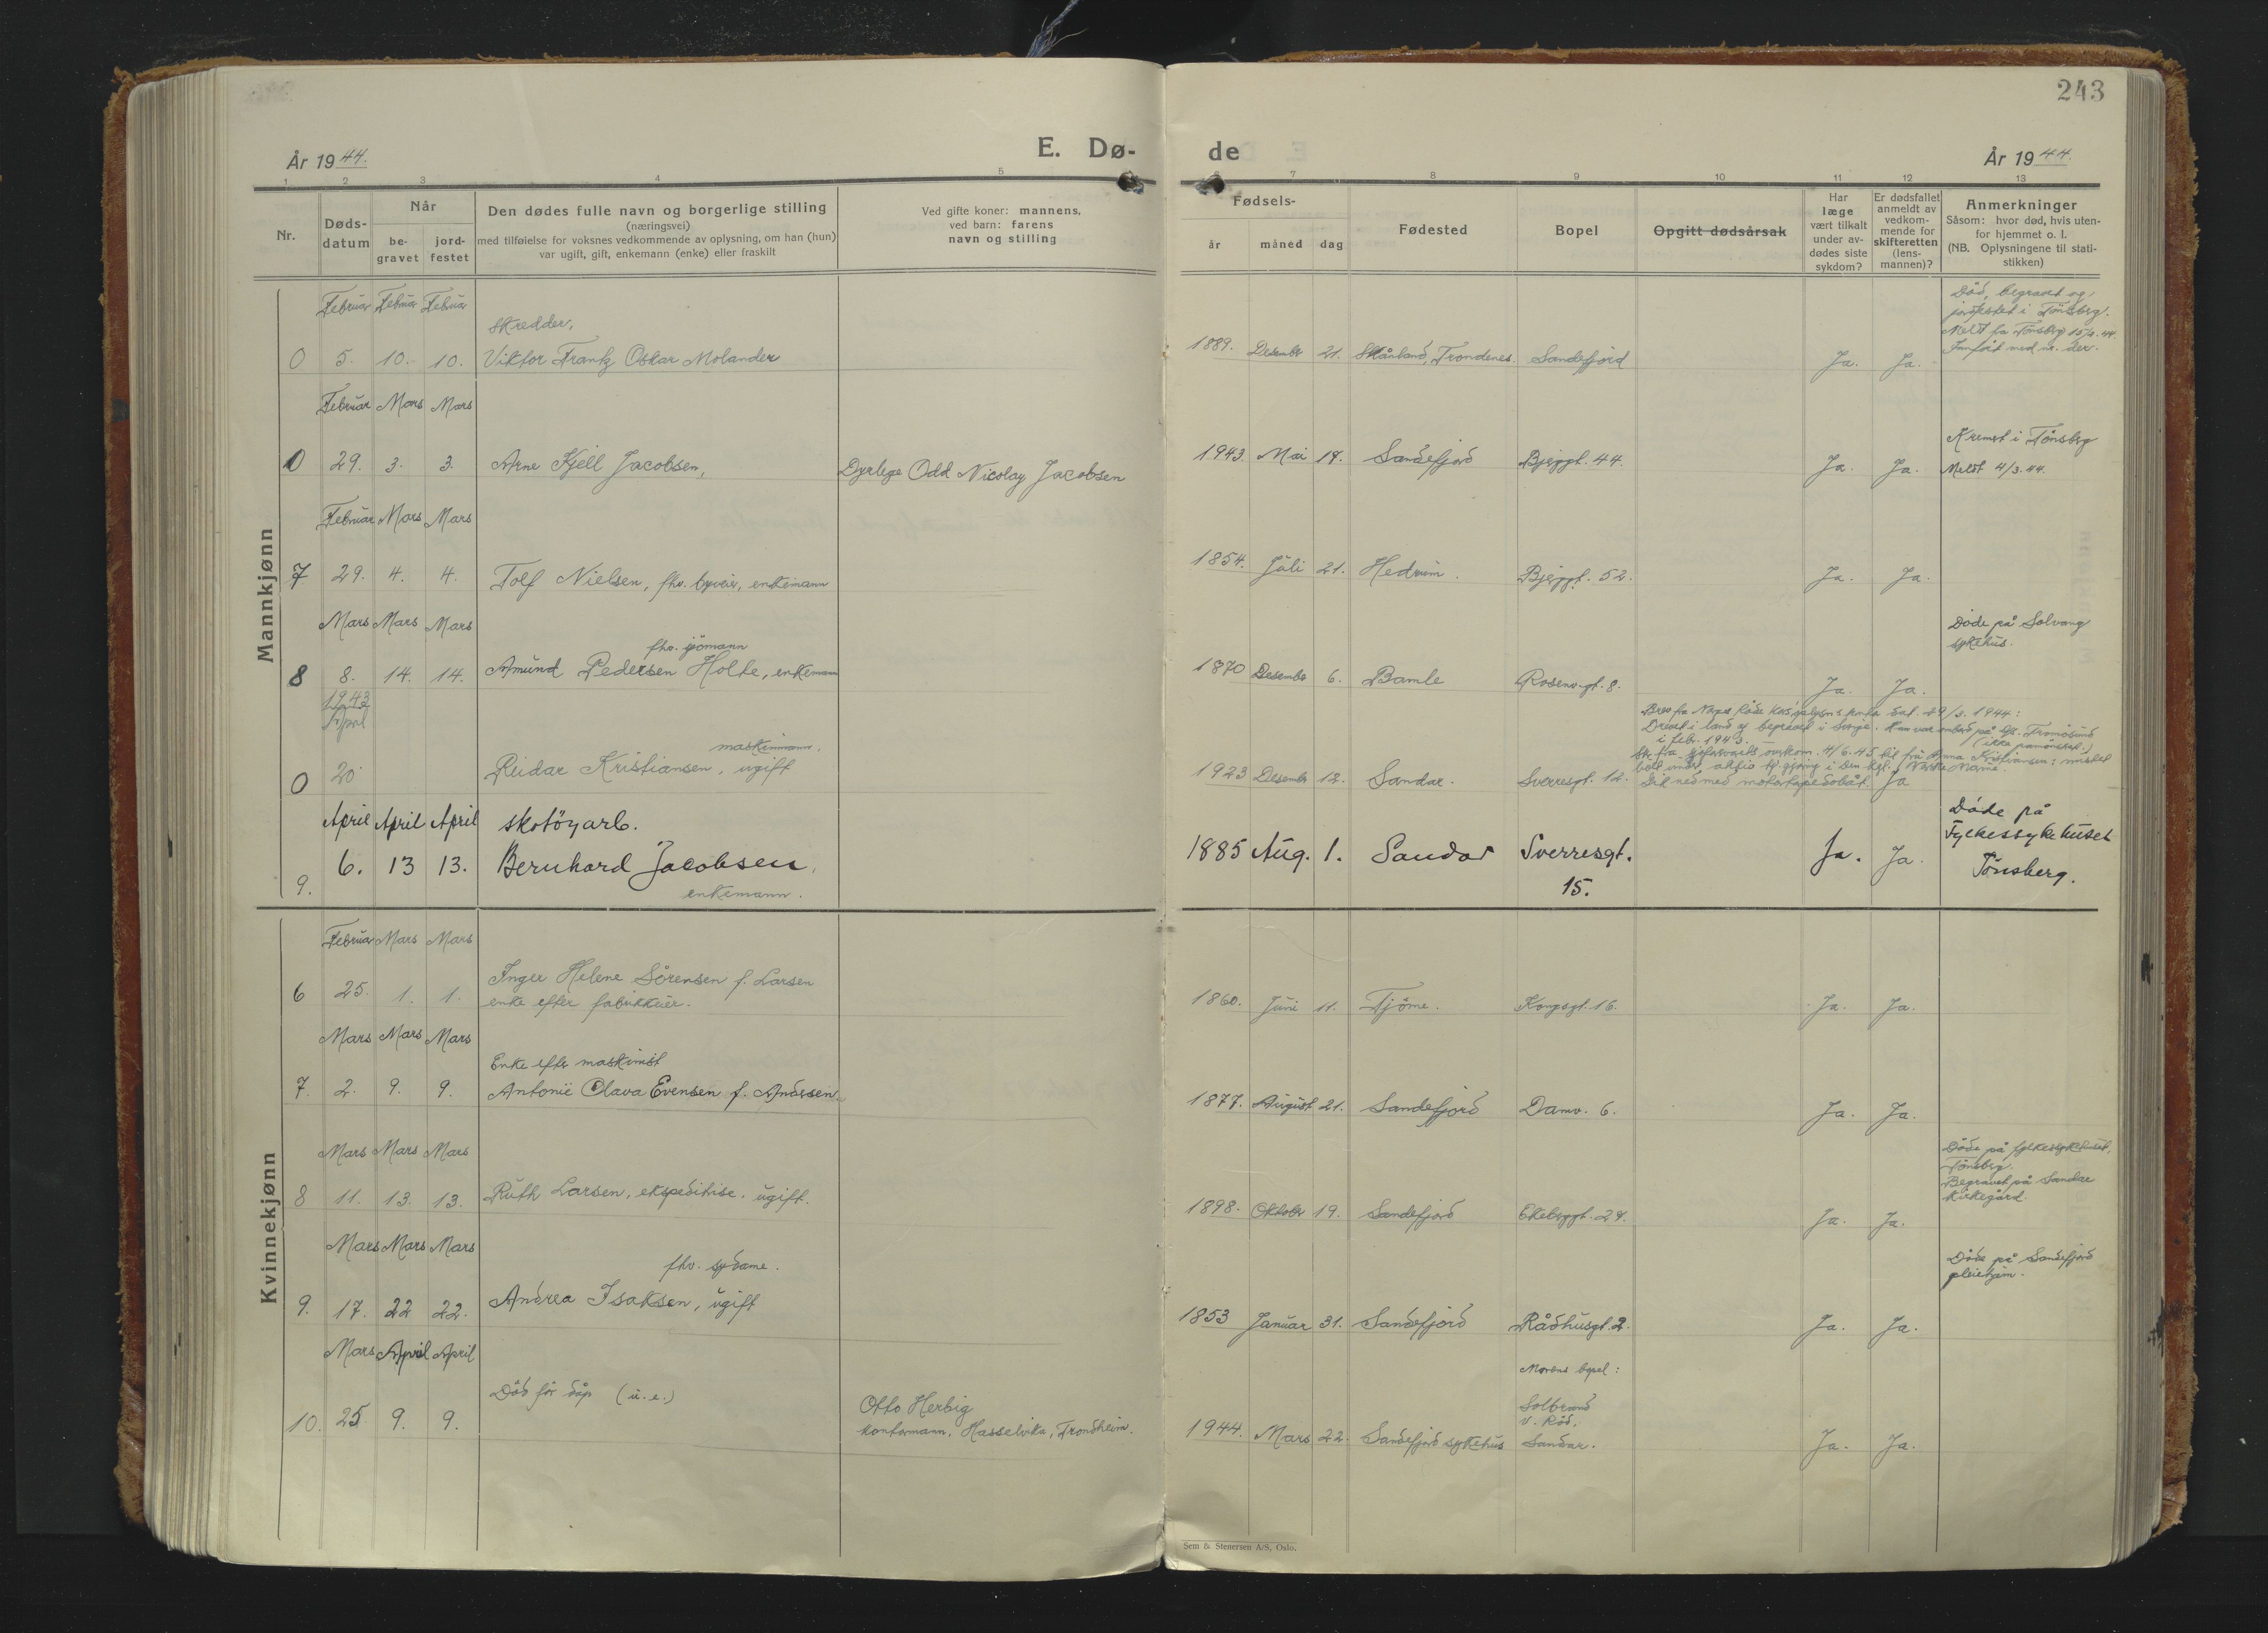 243
År 1944.
E. Dø-
de
År 1944.
1 2 3 4 5 6 7 8 9 10 11 12 13
Nr.
Døds-
datum
Når
be-
gravet
jord-
festet
Den dødes fulle navn og borgerlige stilling
(næringsvei)
med tilføielse for voksnes vedkommende av oplysning, om han (hun)
var ugift, gift, enkemann (enke) eller fraskilt
Ved gifte koner: mannens,
ved barn: farens
navn og stilling
Fødsels-
år måned dag
Fødested
Bopel
Opgitt dødsårsak
Har
læge
vært tilkalt
under av-
dødes siste
sykdom?
Er dødsfallet
anmeldt av
vedkom-
mende for
skifteretten
(lens-
mannen)?
Anmerkninger
Såsom: hvor død, hvis uten-
for hjemmet o. l.
(NB. Oplysningene til stati-
stikken)
Mannkjønn
Februar Februar Februar
Skredder,
0 5. 10. 10. Viktor Frantz Oskar Molander
1889. Desember 21. Skånland, Trondenes. Sandefjord Ja. Ja.
Død, begravet og
jordfestet i Tönsberg.
Meldt fra Tönsbrg 15/2.44.
Jamfört med nr. der.
Februar Mars Mars
0 29. 3. 3. Arne Kjell Jacobsen, Dyrlege Odd Nicolay Jacobsen
1943. Mai 14. Sandefjord Bjerggt. 44. Ja. Ja.
Kremert i Tönsbrg
Meldt 4/3.44.
Februar Mars Mars
7 29. 4. 4. Tolf Nielsen, fhv. byveier, enkemann
1854. Juli 21. Hedrum. Bjerggt. 52. Ja. Ja.
Mars Mars Mars
fhv. sjömann
8 8. 14. 14. Amund Pedersen Holte, enkemann
1870 Desember 6. Bamle Rosenv.gt. 8. Ja. Ja.
Døde på Solvang
sykehus.
1943
April
maskinmann.
0 20 Reidar Kristiansen, ugift
1923 Desember 12. Sandar. Sverresgt. 12. Ja
Brev fra Norges Røde Kors, oplysn.s kontor dat. 29/3. 1944:
Drevet i land og begravet i Sverige. Han var ombord på D/S. Tromösund
i febr. 1943. (ikke pånönnet.)
4/6.45 fra Anna Kristiansen: mistet
livet under aktiv tj.gjöring i Den kgl. Norske Marine.
Gik ned med motortorpedobåt.
April April April skotöyarb.
9. 6. 13 13. Bernhard Jacobsen,
enkemann.
1885 Aug. 1. Sandar Sverresgt.
15.
Ja. Ja.
Döde på
Fylkessykehuset
Tönsberg.
Kvinnekjønn
Februar Mars Mars
6 25. 1. 1. Inger Helene Sörensen f. Larsen
enke efter fabrikkeier.
1860. Juni 11. Tjöme. Kongsgt. 16. Ja. Ja.
Mars Mars Mars
Enke efter maskinist
7. 2. 9. 9. Antonie Olava Evensen f. Andersen.
1877. August 21. Sandefjord Damv. 6. Ja. Ja.
Mars Mars Mars
8 11. 13. 13. Ruth Larsen, ekspeditrise. ugift.
1898. Oktober 19. Sandefjord Ekebrggt. 24. Ja. Ja.
Döde på fylkessykehuset,
Tönsbrg.
Begravet på Sandar
kirkegård.
Mars Mars Mars
fhv. sydame.
9. 17. 22 22. Andrea Isaksen, ugift
1853 Januar 31. Sandefjord Rådhusgt. 2. Ja. Ja.
Döde på Sandefjord
pleiehjem.
Mars April April
Död för dåp (u.e.)
10. 25. 9. 9.
Otto Herbig
kontormann, Hasselvika, Trondheim.
1944. Mars 22. Sandefjord sykehus
Morens bopel:
Solbrand
v. Röd,
Sandar.
Ja. Ja.
Sem & Stenersen A/S, Oslo.